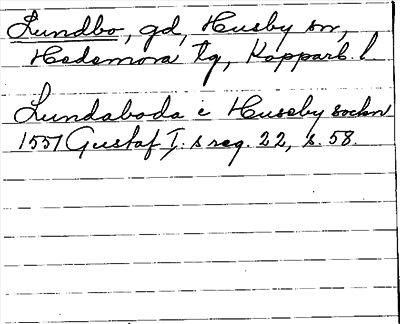 Lundbo, gd, Husby sn,
Hedemora tg, Kopparb. l.
Lundaboda i Huseby sockn
1551 Gustaf I:s reg. 22, s. 58.